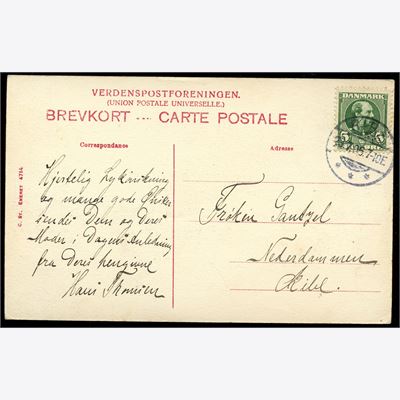 VERDENSPOSTFORENINGEN.
(UNION POSTALE UNIVERSELLE.)
BREVKORT --- CARTE POSTALE
DANMARK
5 5
Correspondance
Adresse
Hjertelig Lykønskning
og mange gode Ønsker
sendes Dem og Deres
Moder i Dagens Anledning
fra Deres hengivne
Hans Thomsen
Frøken
Nederdammen
Ribe.
C. St. Eneret 4764